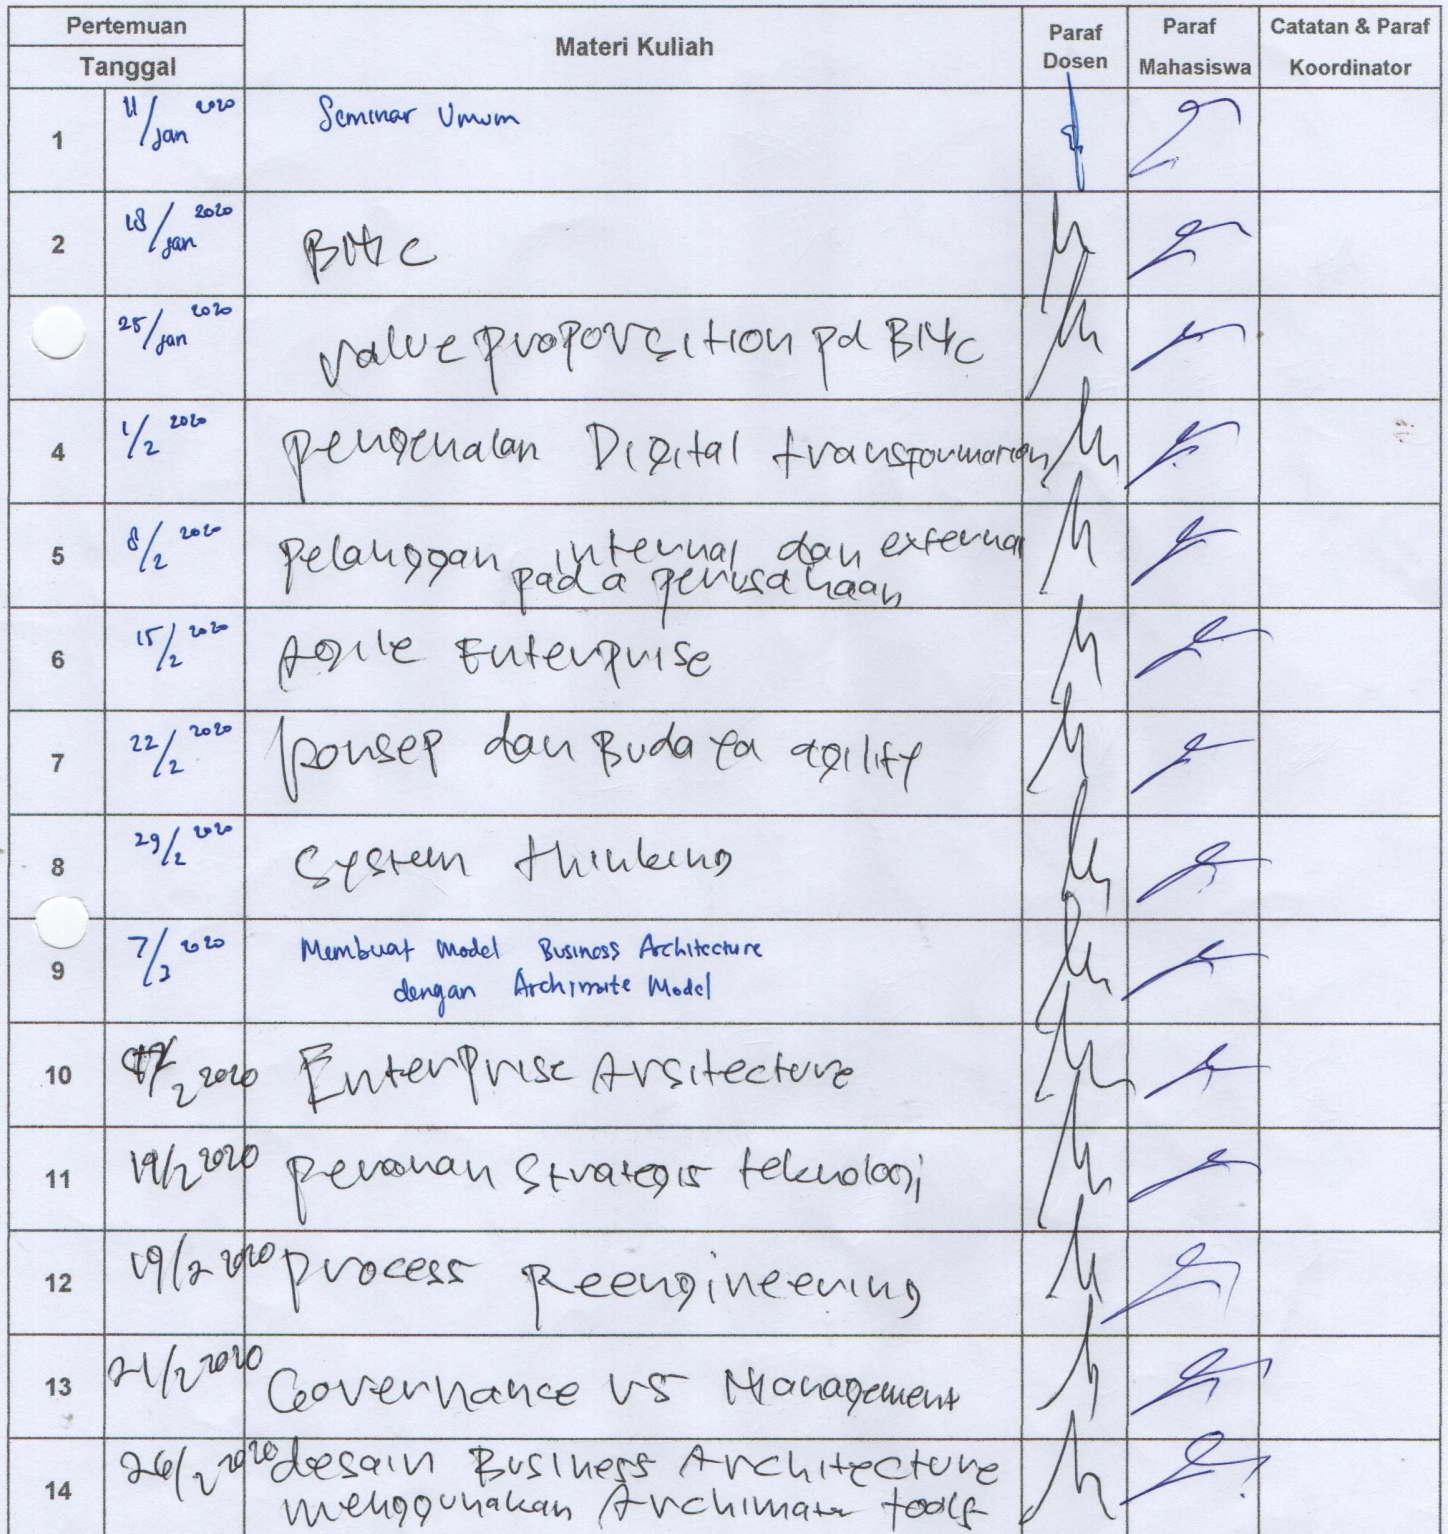 Pertemuan
Tanggal
Materi Kuliah
Paraf Dosen
Paraf Mahasiswa
Catatan & Paraf Koordinator
1 11/Jan 2020 Seminar Umum
2 18/Jan 2020 BMC
25/Jan 2020 value proporsition pd BMC
4 1/2 2020 pengenalan Digital transformation
5 8/2 2020 pelanggan internal dan external
pada perusahaan
6 15/2 2020 Agile Enterprise
7 22/2 2020 konsep dan Budaya agility
8 29/2 2020 system thinking
9 7/3 2020 Membuat Model Business Architecture
dengan Archimate Model
10 /2 2020 Enterprise Arsitecture
11 19/2 2020 peranan strategis teknologi
12 19/2 2020 process Reengineering
13 21/2 2020 Governance vs Management
14 26/2 2020 desain Business Architecture
menggunakan Archimate tools